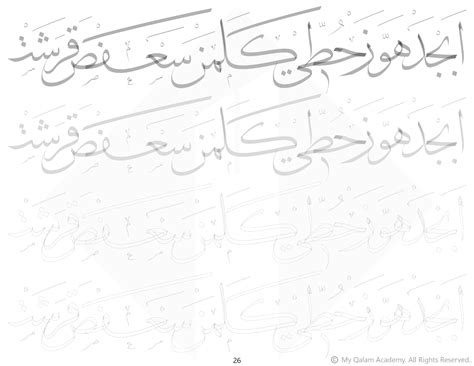 ابجد هوز حطي كلمن سعفص قرشت
ابجد هوز حطي كلمن سعفص قرشت
ابجد هوز حطي كلمن سعفص قرشت
ابجد هوز حطي كلمن سعفص قرشت
26
© My Qalam Academy. All Rights Reserved.